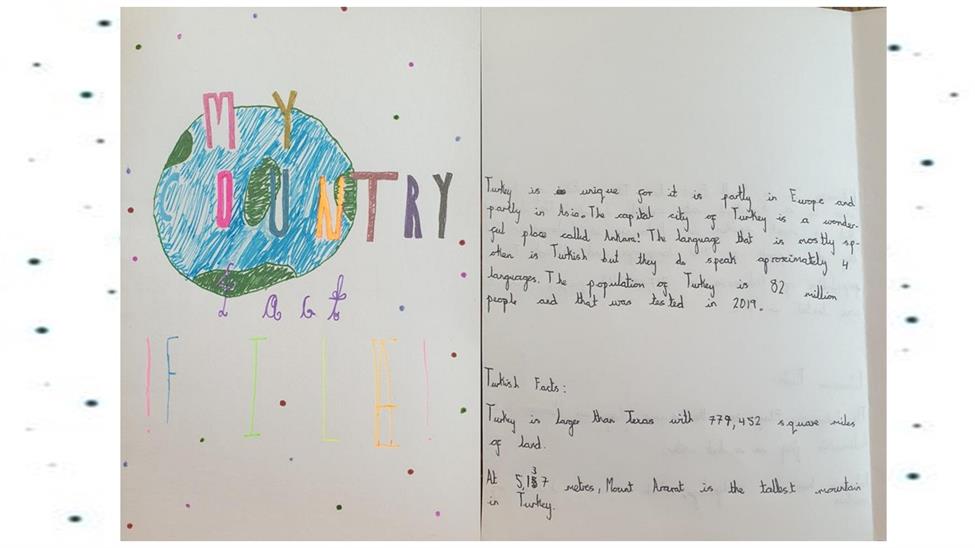 MY
COUNTRY
fact
!FILE!
Turkey is unique for it is partly in Europe and
partly in Asia. The capital city of Turkey is a wonder-
ful place called Ankara! The language that is mostly sp-
oken is Turkish but they do speak aproximately 4
languages. The population of Turkey is 82 million
people and that was tested in 2019.
Turkish Facts:
Turkey is larger than Texas with 779,452 square miles
of land.
At 5,137 metres, Mount Ararat is the tallest mountain
in Turkey.